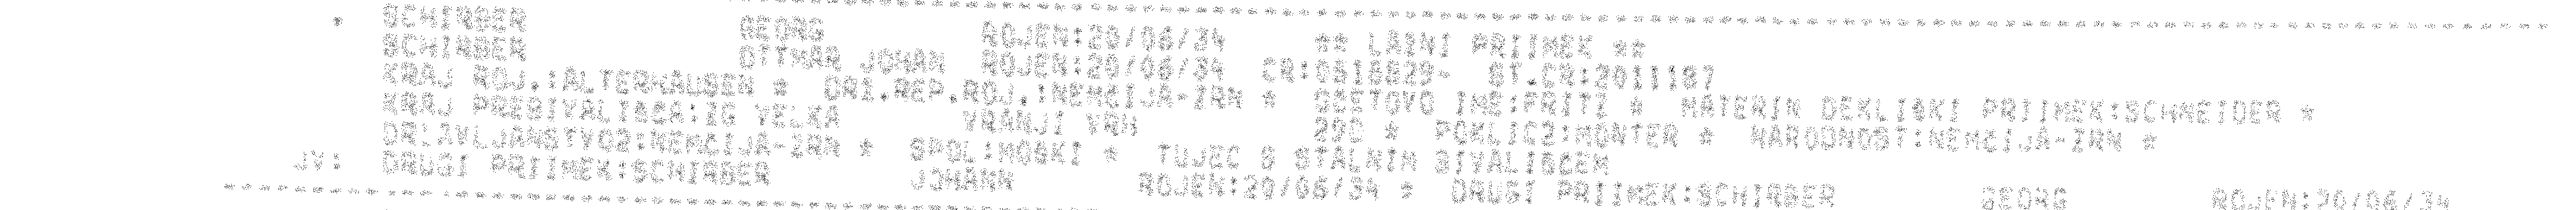 * SCHIRBER GEORG ROJEN:20/06/34 ** LAZNI PRIIMEK **
SCHIRBER OTTMAR JOHAN ROJEN:20/06/34 CR:0516629- ST.CR:2011187
KRAJ ROJ.:ALTERHAUSEN * DRZ.REP.ROJ.:NEMCIJA-ZRN * OCETOVO IME:FRITZ * MATERIN DEKLISKI PRIIMEK:SCHNEIDER *
KRAJ PREBIVALISCA:IG VELKA VRANJI VRH 29C * POKLIC2:MONTER * NARODNOST:NEMCIJA-ZRN *
DRZAVLJANSTVO2:NEMCIJA-ZRN * SPOL:MOSKI * TUJEC S STALNIM BIVALISCEM
JV: DRUGI PRIIMEK:SCHIRBER JOHANN ROJEN:20/06/34 * DRUGI PRIIMEK:SCHIRBER GEORG ROJEN:20/06/34